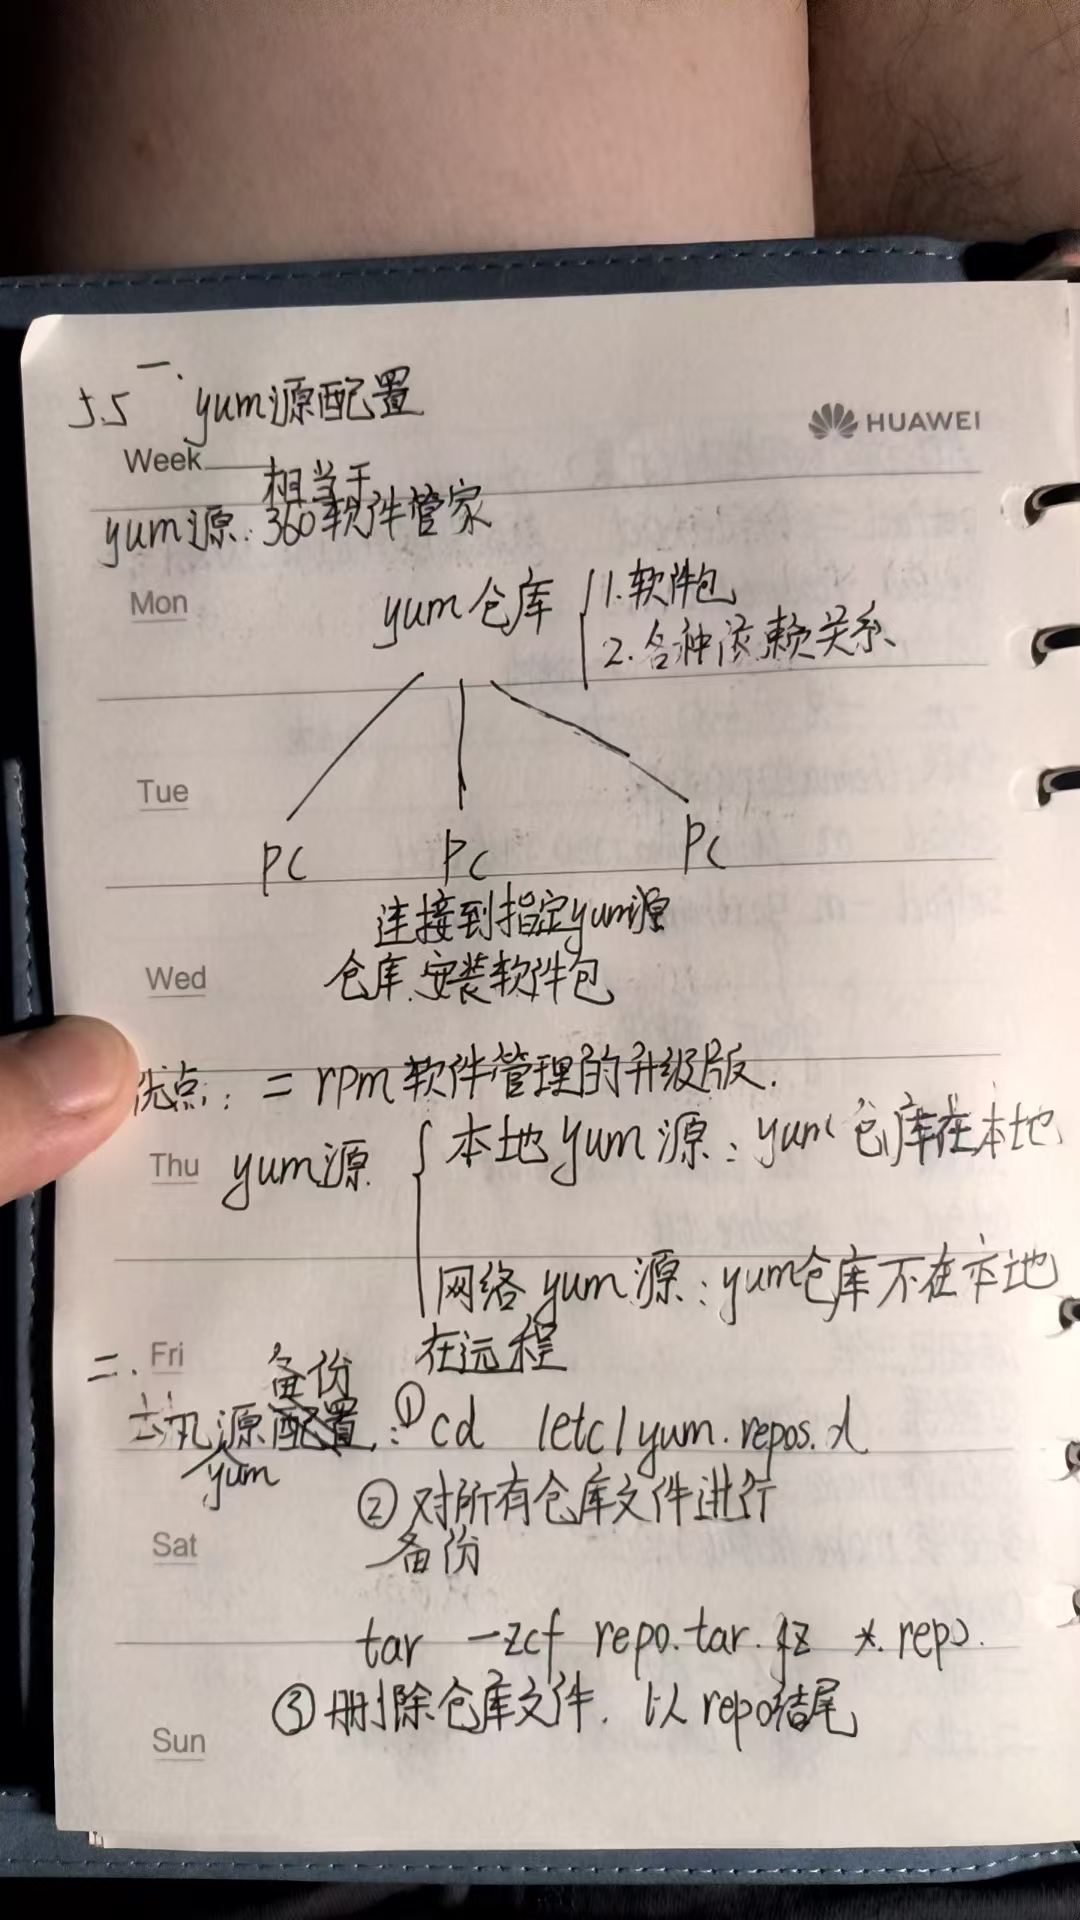 5.5 一. yum源配置
HUAWEI
Week
相当于
yum源: 360软件管家
Mon
yum仓库 { 1.软件包
2.各种依赖关系
Tue
PC PC PC
连接到指定yum源
仓库.安装软件包
Wed
优点: = rpm软件管理的升级版.
Thu
yum源 { 本地yum源: yum仓库在本地
网络yum源: yum仓库不在本地
在远程
二. Fri
备份
yum
源配置: ① cd /etc/yum.repos.d
② 对所有仓库文件进行
备份
Sat
tar -zcf repo.tar.gz *.repo.
③ 删除仓库文件. 以repo结尾
Sun